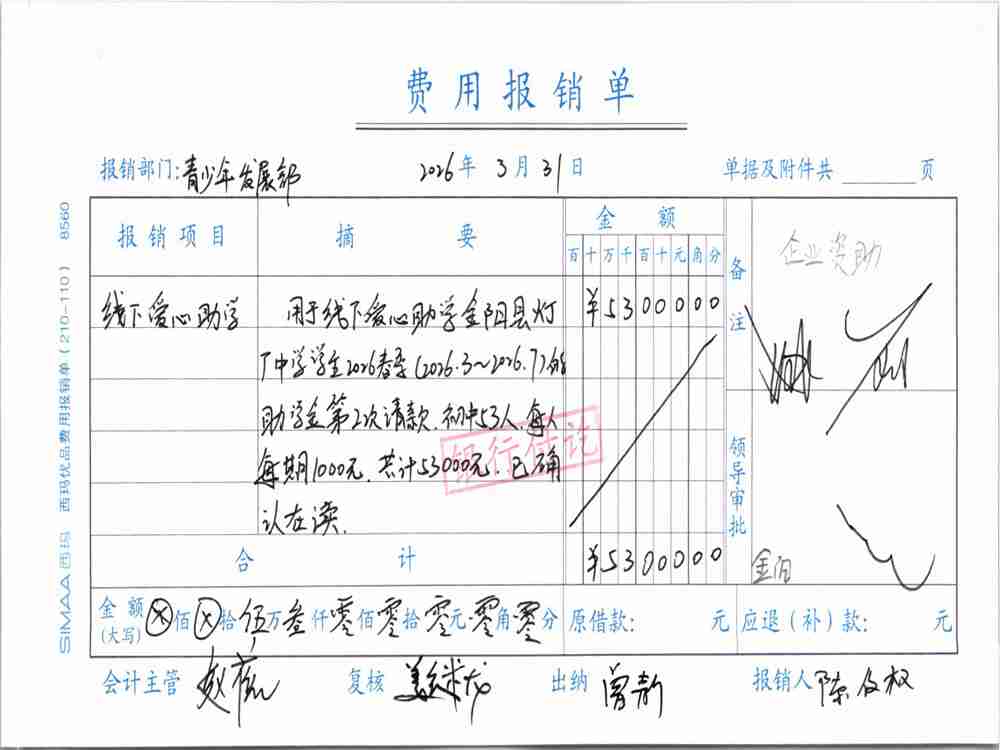 费用报销单
报销部门:青少年发展部 2026年 3月 31日 单据及附件共 页
报销项目 摘 要 金 额 备注
百十万千百十元角分
企业资助
线下爱心助学 用于线下爱心助学金阳县灯 ¥5300000
厂中学学生2026春季(2026.3~2026.7)的
助学金第2次请款.初中53人,每人
每期1000元,共计53000元,已确
认在读.
银行付讫
领导审批
合 计 ¥5300000
金额(大写) ⊗佰⊗拾伍万叁仟零佰零拾零元零角零分 原借款: 元 应退(补)款: 元
会计主管 复核 出纳 曾 报销人 陈
SIMAA 西玛 西玛优品费用报销单(210-110) 8560